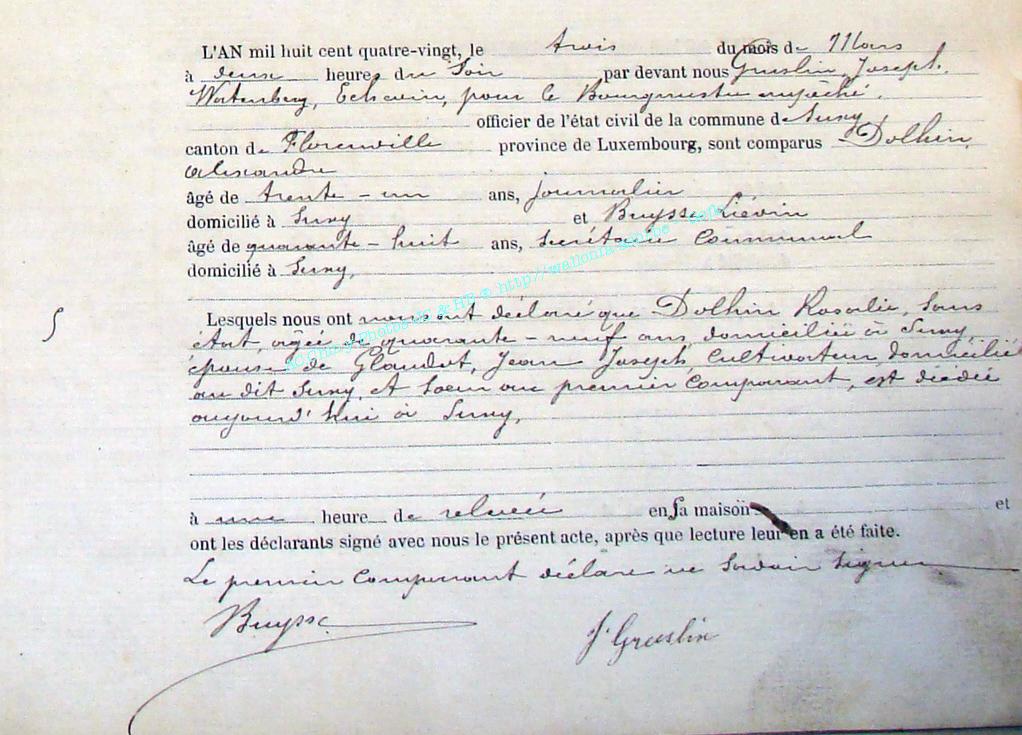 L'AN mil huit cent quatre-vingt, le trois du mois de Mars
à deux heures du Soir par devant nous Gruslin, Joseph,
Echevin, pour le Bourgmestre empêché,
officier de l'état civil de la commune de Suxy
canton de Florenville province de Luxembourg, sont comparus Dolhin,
Alexandre
âgé de trente-un ans, journalier
domicilié à Suxy et Buysse Liévin
âgé de quarante-huit ans, Secrétaire Communal
domicilié à Suxy,
Lesquels nous ont nous ont déclaré que Dolhin Rosalie, Sans
état, âgée de quarante-neuf ans, domiciliée à Suxy
épouse de Glaudot, Jean Joseph, Cultivateur domicilié
au dit Suxy, et Soeur au premier Comparant, est décédée
aujourd'hui à Suxy,
à une heure de relevée en sa maison et
ont les déclarants signé avec nous le présent acte, après que lecture leur en a été faite.
Le premier Comparant déclare ne Savoir Signer
Buysse
J. Gruslin